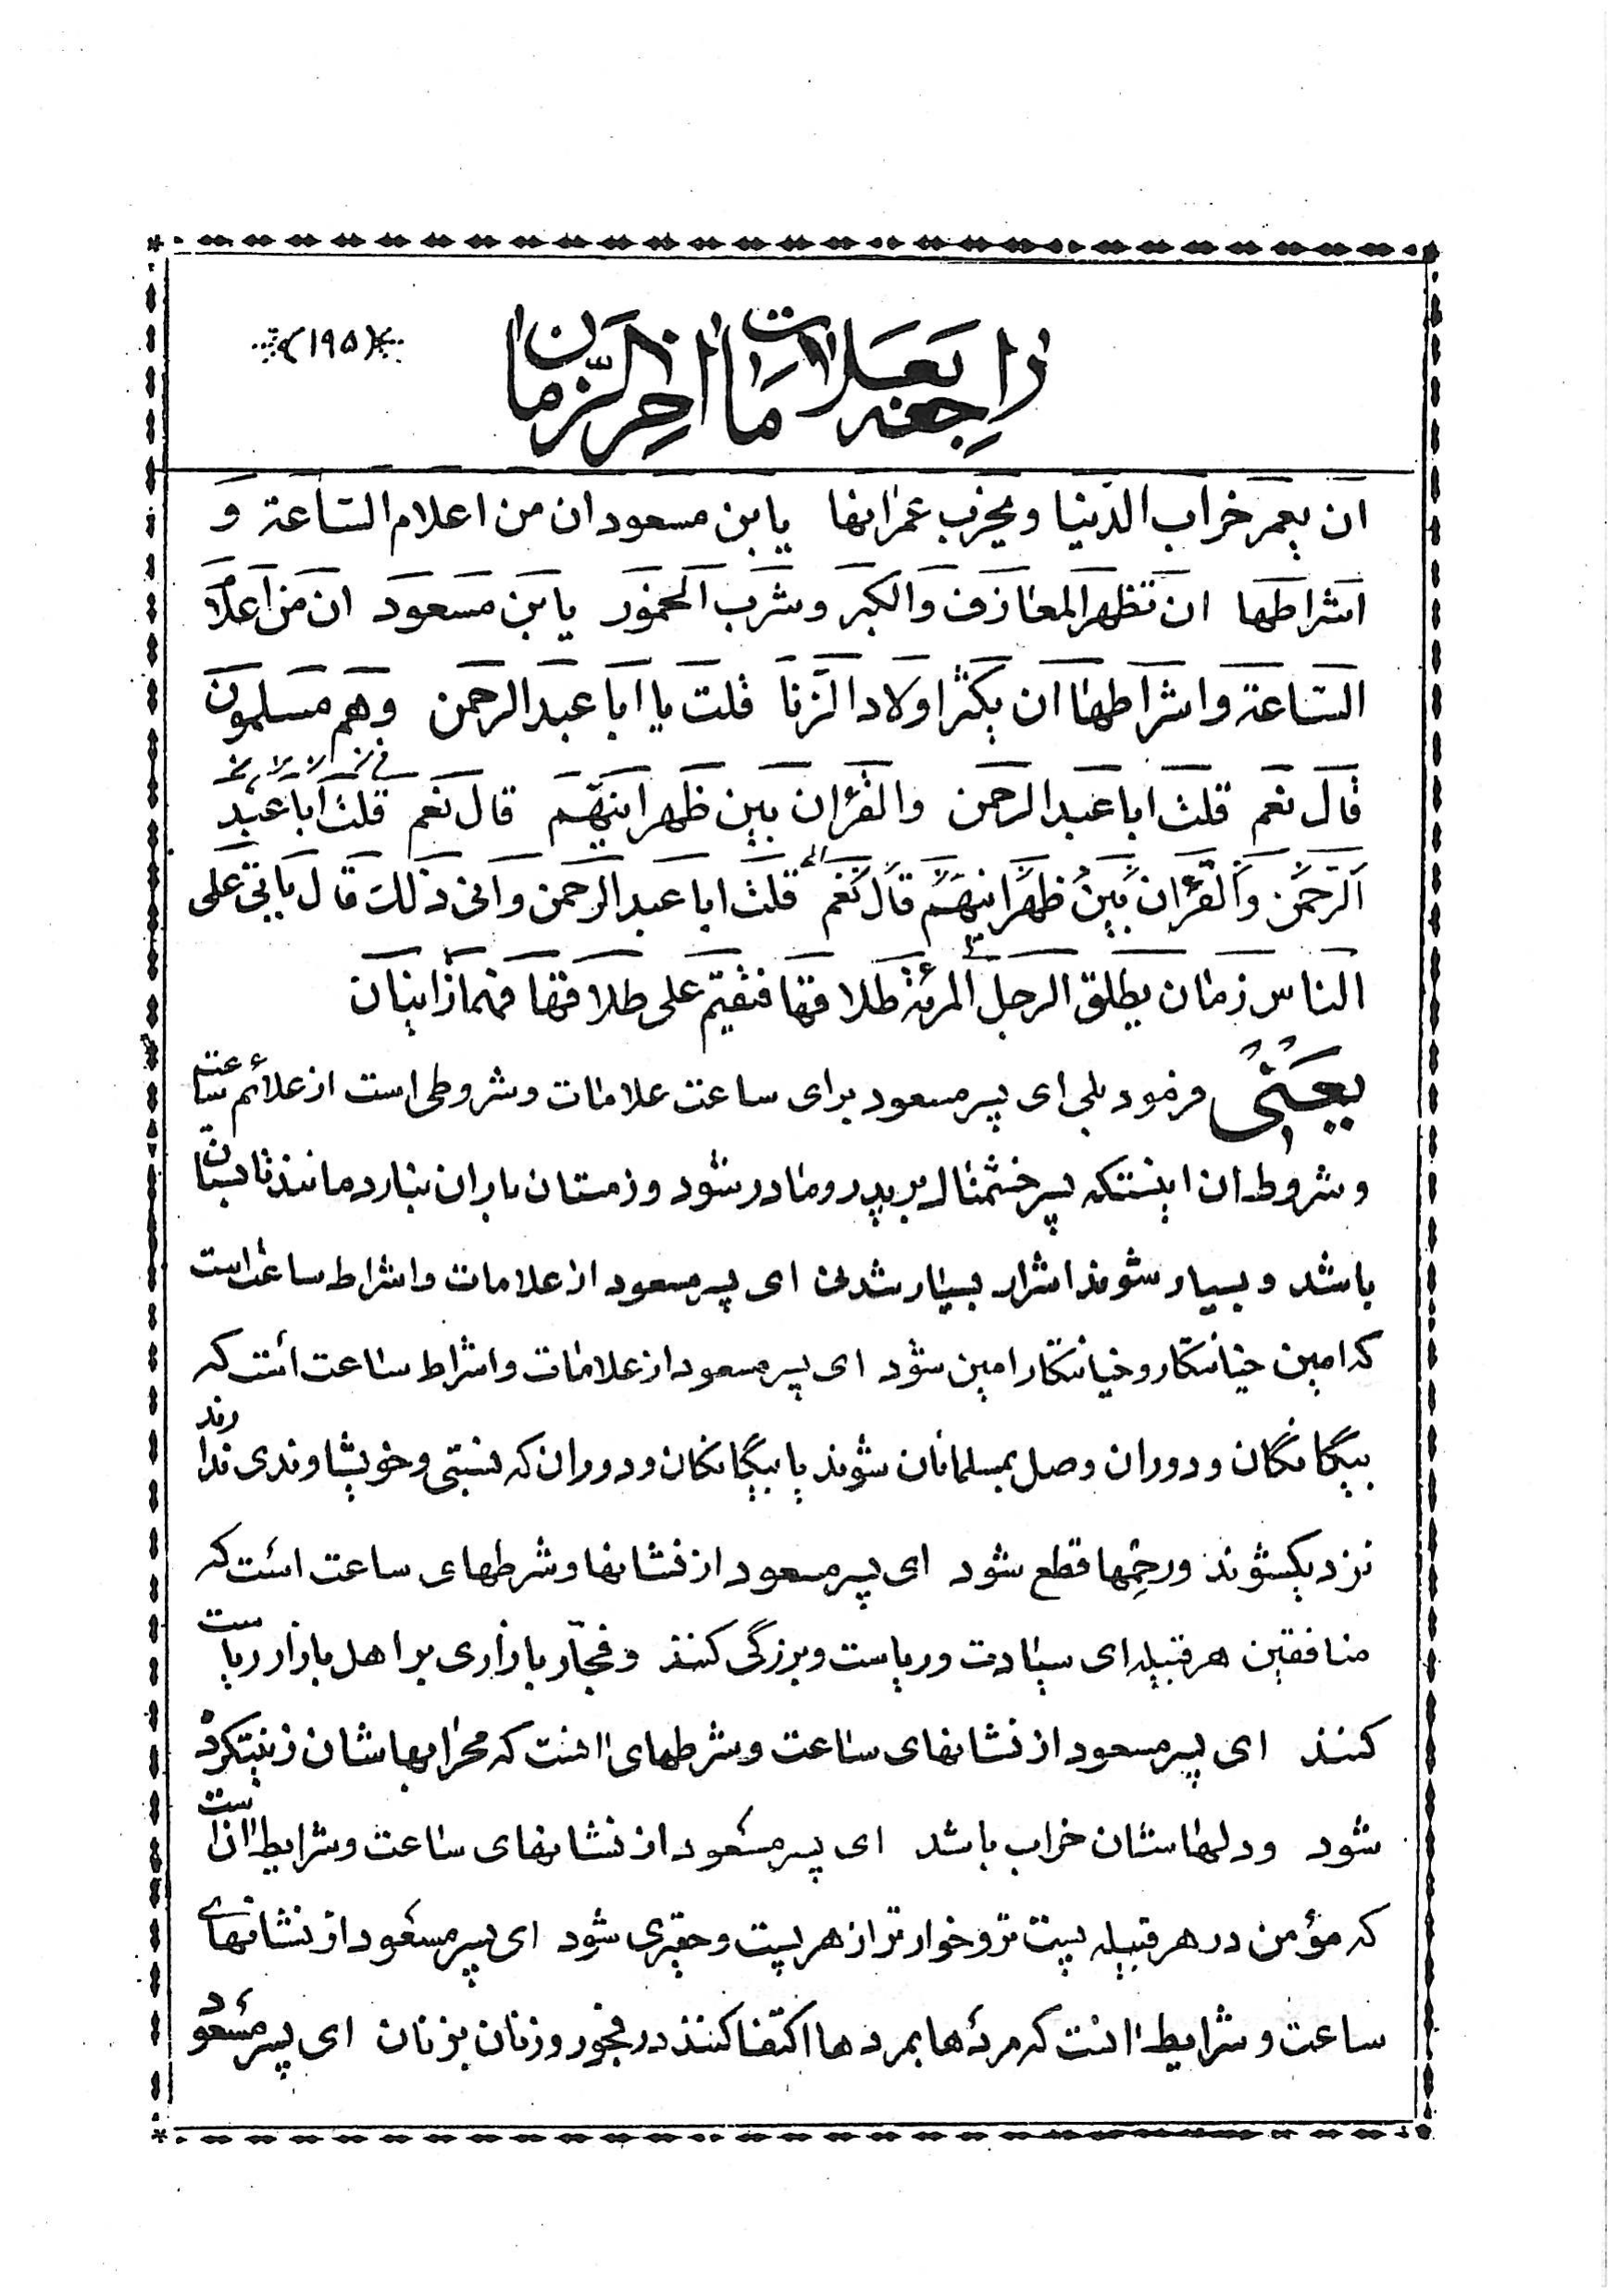 راجعه بعلامات اخر الزمان
(۱۹۵)
ان یعمر خراب الدنیا و یخرب عمرانها یابن مسعود ان من اعلام الساعة و
اشراطها ان تظهر المعازف والکبر وشرب الخمور یابن مسعود ان من اعلام
الساعة واشراطها ان یکثر اولاد الزنا قلت یا ابا عبدالرحمن وهم مسلمون
قال نعم قلت ابا عبدالرحمن والقرءان بین ظهرانیهم قال نعم قلت ابا عبد
الرحمن والقرءان بین ظهرانیهم قال نعم قلت ابا عبدالرحمن وانی ذلک قال یاتی علی
الناس زمان یطلق الرجل المرئة طلاقها فتقیم علی طلاقها فهما زانیان
یعنی فرمود بلی ای پسر مسعود برای ساعت علامات وشروطی است از علائم ساعت
و شروط ان اینستکه پسر خشمناک بر پدر ومادر شود و زمستان باران نبارد مانند تابستان
باشد و بسیار شوند اشرار بسیار شدنی ای پسر مسعود از علامات واشراط ساعت است
که امین خیانتکار وخیانتکار امین شود ای پسر مسعود از علامات واشراط ساعت است که
بیگانگان و دوران وصل بمسلمانان شوند یا بیگانگان ودوران که نسبتی وخویشاوندی ندارند
نزدیکشوند ورحمها قطع شود ای پسر مسعود از نشانها وشرطهای ساعت است که
منافقین هر قبیله ای سیادت و ریاست وبزرگی کنند و فجار بازاری بر اهل بازار ریاست
کنند ای پسر مسعود از نشانهای ساعت وشرطهای ا انست که محرابهاشان زینتکرده
شود ودلهاشان خراب باشد ای پسر مسعود از نشانهای ساعت وشرایط ان است
که مؤمن در هر قبیله پست تر وخوارتر از هر پست وحقیری شود ای پسر مسعود از نشانهای
ساعت و شرایط ا انست که مردها بمردها اکتفا کنند در فجور و زنان بزنان ای پسر مسعود